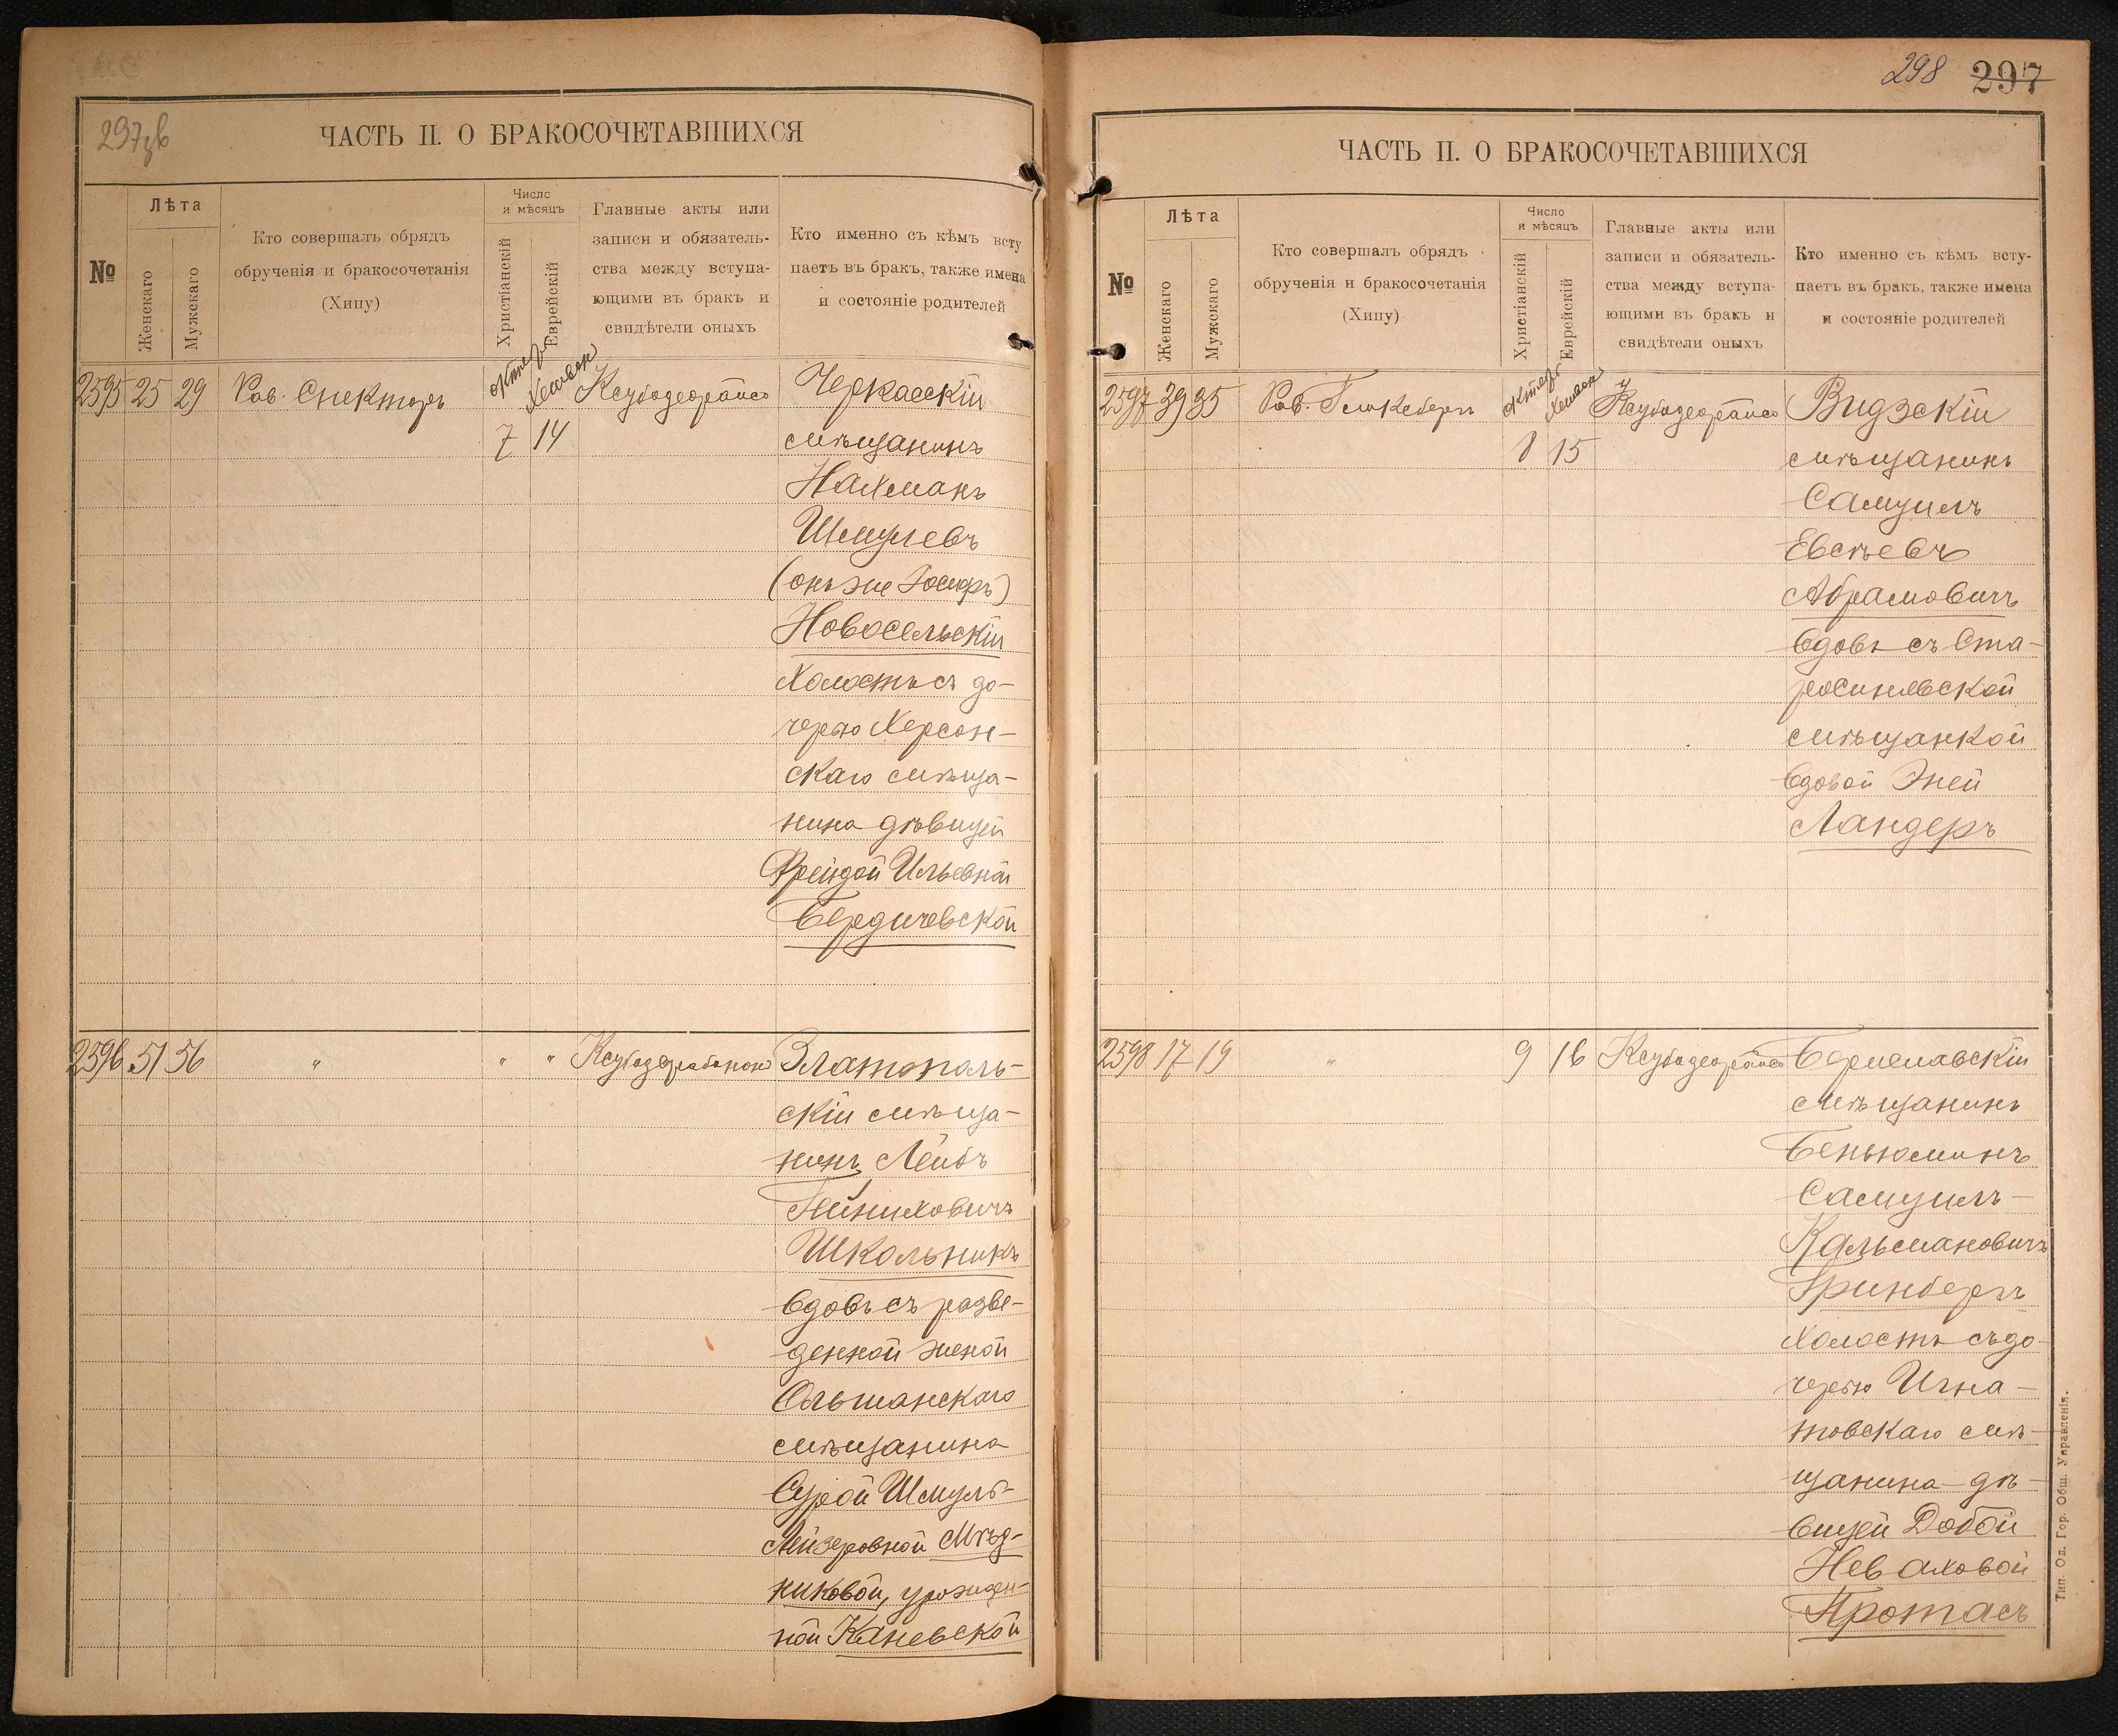 297об
ЧАСТЬ II. О БРАКОСОЧЕТАВШИХСЯ
№
Лѣта
Женскаго
Мужскаго
Кто совершалъ обрядъ
обрученія и бракосочетанія
(Хипу)
Число
и мѣсяцъ
Христіанскій
Еврейскій
Главные акты или
записи и обязатель-
ства между вступа-
ющими въ бракъ и
свидѣтели оныхъ
Кто именно съ кѣмъ всту
паетъ въ бракъ, также имена
и состояніе родителей
2595 25 29 Рав. Спекторъ
Черкасскій
7 14 мѣщанинъ
Нахманъ
Шмулевъ
(онъ же Іосифъ)
Новосельскій
холостъ съ до-
черью Херсон-
скаго мѣща-
нина дѣвицей
Фрейдой Ильевной
Бердичевской
2596 51 56 " " "
Златополь-
скій мѣща-
нинъ Лейбъ
Школьникъ
вдовъ съ разве-
денной женой
Ольшанскаго
мѣщанина
Сурой Шмуль-
Лейзеровной Мѣд-
никовой, урожден-
ной Каневской
298 297
ЧАСТЬ II. О БРАКОСОЧЕТАВШИХСЯ
№
Лѣта
Женскаго
Мужскаго
Кто совершалъ обрядъ
обрученія и бракосочетанія
(Хипу)
Число
и мѣсяцъ
Христіанскій
Еврейскій
Главные акты или
записи и обязатель-
ства между вступа-
ющими въ бракъ и
свидѣтели оныхъ
Кто именно съ кѣмъ всту-
паетъ въ бракъ, также имена
и состояніе родителей
2597 39 35 Рав.
Видзскій
8 15 мѣщанинъ
Самуилъ
Евсѣевъ
Абрамовичъ
вдовъ съ Ста-
росинявской
мѣщанкой
вдовой Эней
Ландеръ
2598 17 19 " 9 16
Бериславскій
мѣщанинъ
Беньюминъ
Самуилъ-
Кальмановичъ
Гринбергъ
холостъ съ до-
черью Игна-
товскаго мѣ-
щанина дѣ-
вицей Добой
Неваховой
Протасъ
Тип. Од. Гор. Общ. Управленія.